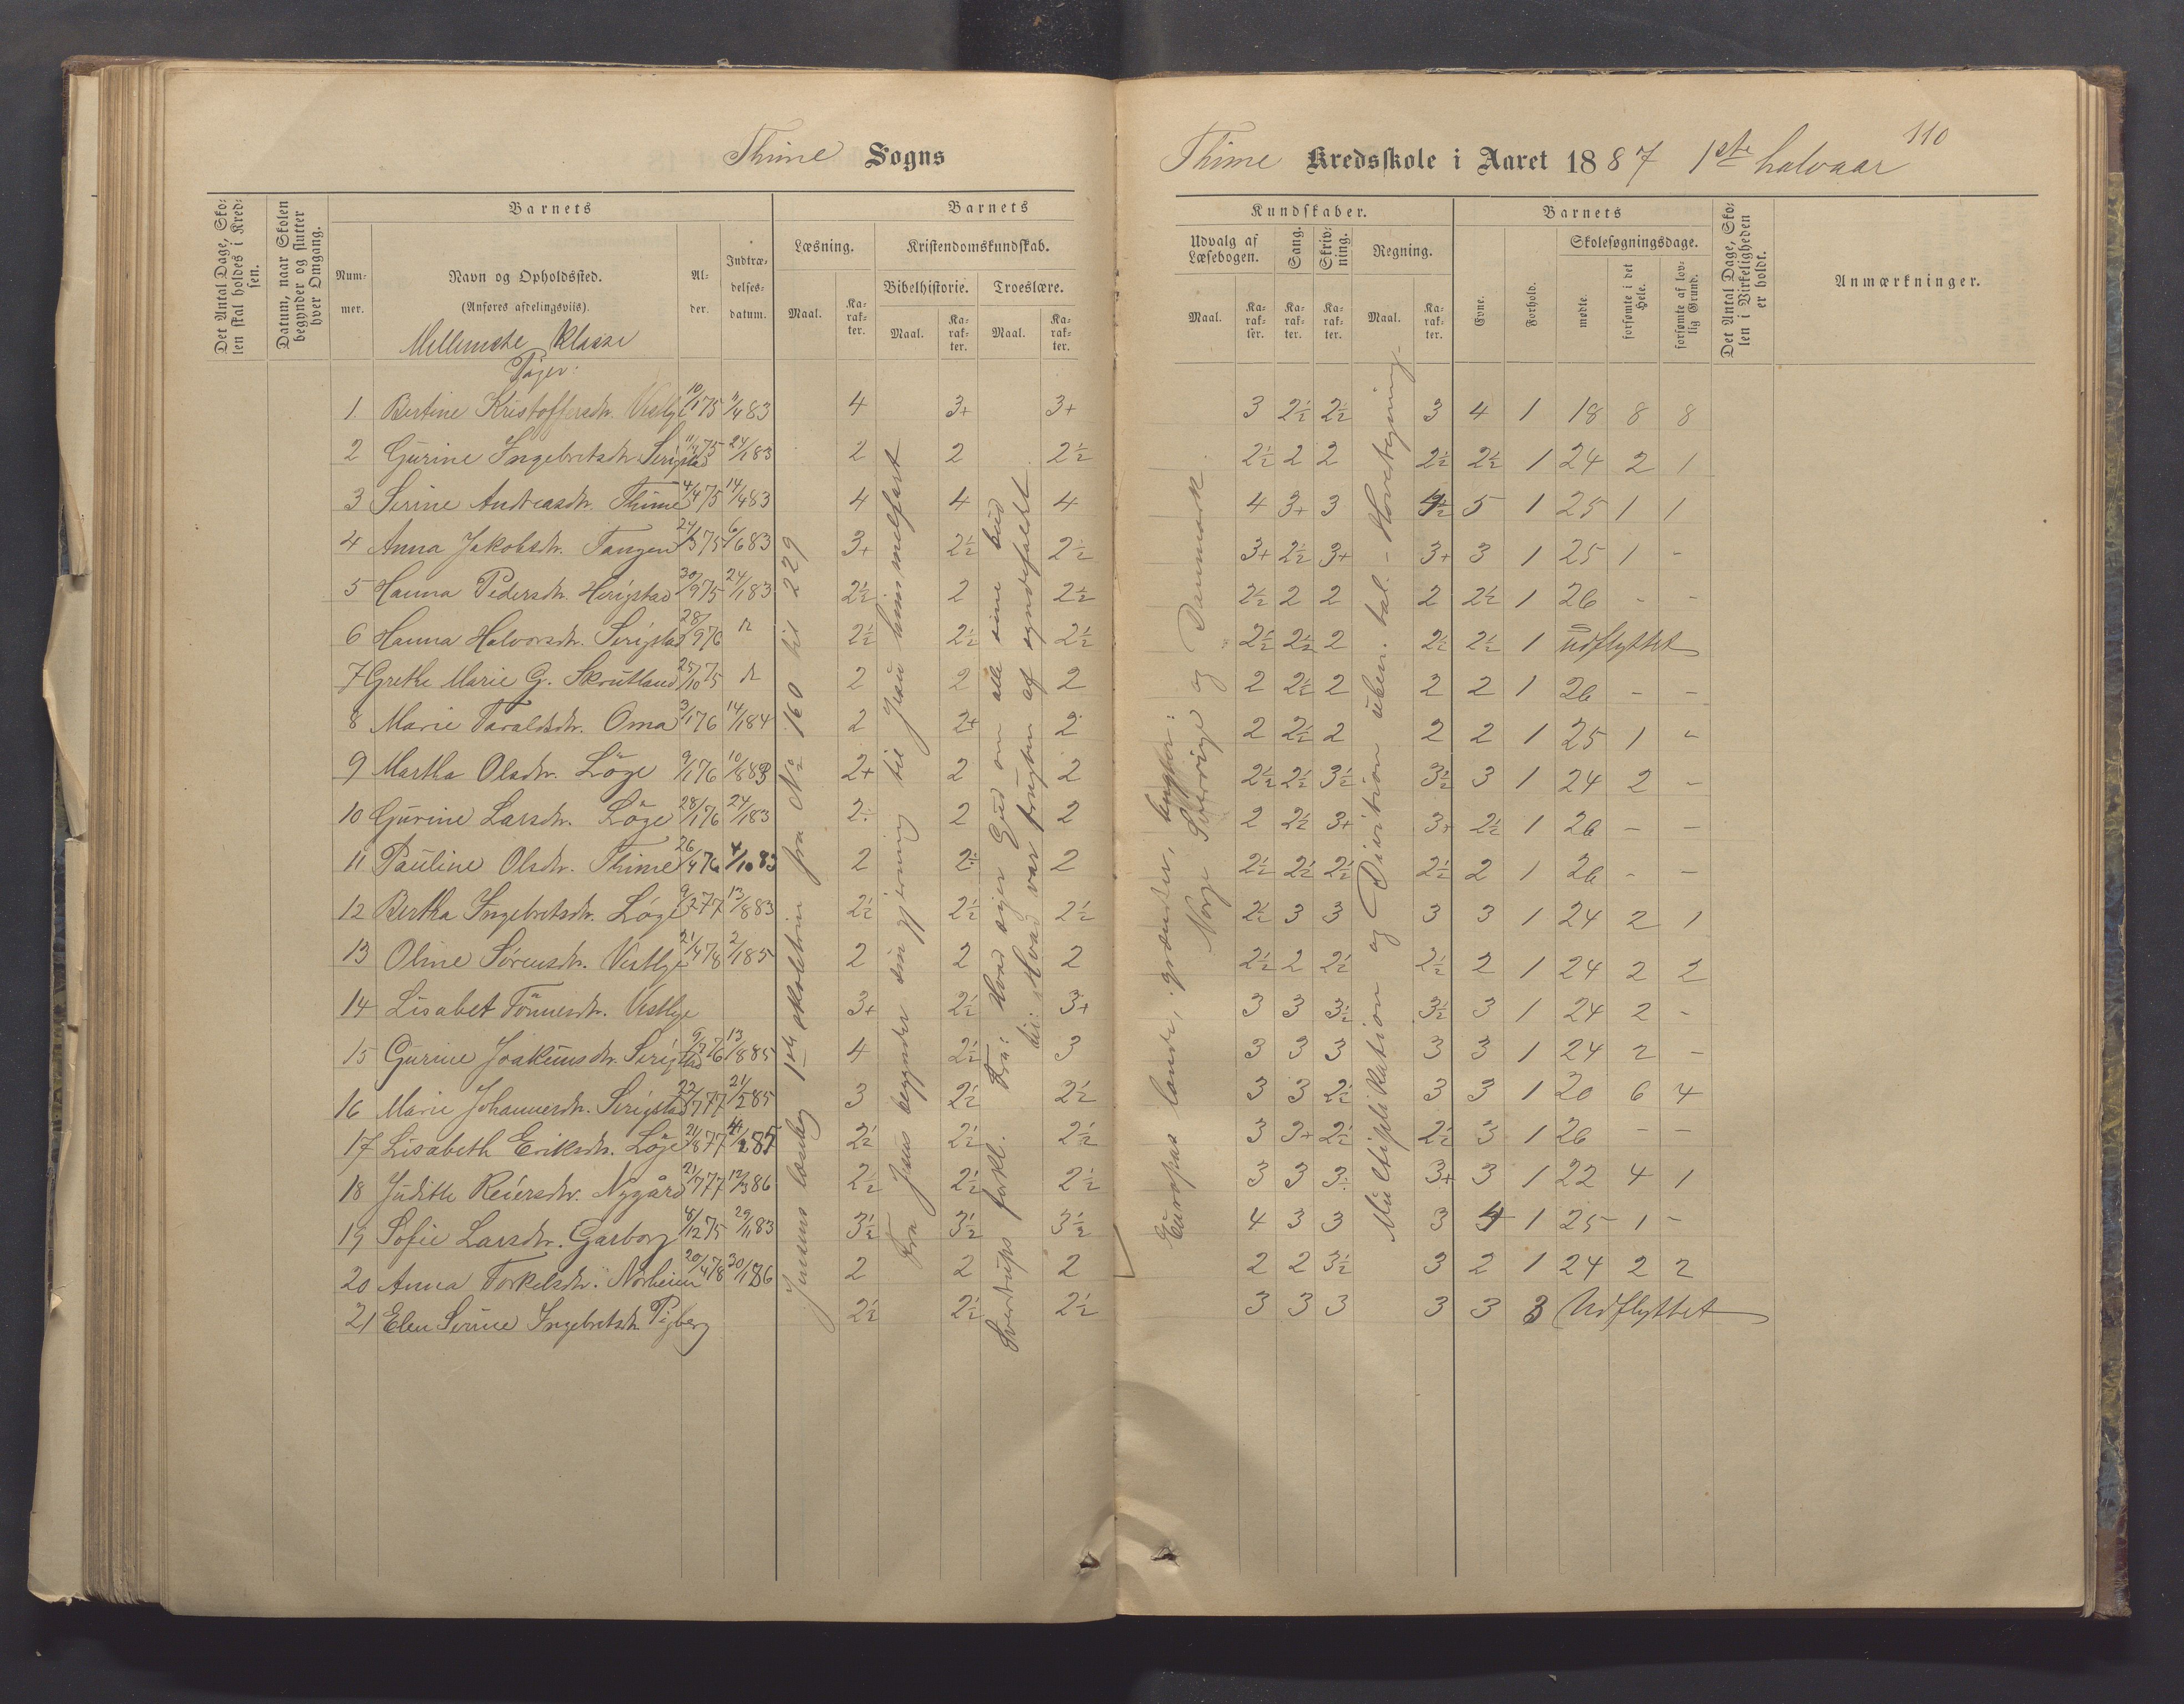 110
Thime Sogns
Thime Kredsskole i Aaret 1887 1ste halvaar
Det Antal Dage, Skolen skal holdes i Kredsen.
Datum, naar Skolen begynder og slutter hver Omgang.
Barnets
Nummer.
Navn og Opholdssted.
(Anføres afdelingsvils).
Alder.
Indtrædelsesdatum.
Barnets
Læsning.
Maal.
Karakter.
Kristendomskundskab.
Bibelhistorie.
Maal.
Karakter.
Troeslære.
Maal.
Karakter.
Kundskaber.
Udvalg af Læsebogen.
Maal.
Karakter.
Sang.
Karakter.
Skrivning.
Karakter.
Regning.
Maal.
Karakter.
Barnets
Evne.
Forhold.
Skolesøgningsdage.
mødte.
forsømte i det Hele.
forsømte af lovlig Grund.
Det Antal Dage, Skolen i Virkeligheden er holdt.
Anmærkninger.
Mellemste Klasse
Piger:
1 Bertine Kristoffersdtr. Vestly 10/1 75 11/4 83 4 3+ 3+ 3 2½ 2½ 3 4 1 18 8 8
2 Gurine Ingebretsdtr. Serigstad 75 24/1 83 2 2 2½ 2½ 2 2 2½ 2½ 1 24 2 1
3 Serine Andreasdtr. Thime 4/4 75 14/4 83 4 4 4 4 3+ 3 5 1 25 1 1
4 Anna Jakobsdtr. Tangen 24/3 75 6/6 83 3+ 2½ 2½ 3+ 2½ 3+ 3+ 3 1 25 1 -
5 Hanna Pedersdtr. Herigstad 30/9 75 24/1 83 2½ 2 2½ 2½ 2 2 2 2½ 1 26 - -
6 Hanna Halvorsdtr. Serigstad 28/9 76 2½ 2½ 2½ 2½ 2½ 2 2½ 2½ 1 udflyttet
7 Grethe Marie G. Skrutland 25/10 75 2 2 2 2 2½ 2 2 2 1 26 - -
8 Marie Taraldsdtr. Oma 3/1 76 14/1 84 2 2+ 2 2 2½ 2 2 2 1 25 1 -
9 Martha Olsdtr. Löge 9/1 76 10/8 83 2+ 2 2 2½ 2½ 3½ 3½ 3 1 24 2 -
10 Gurine Larsdtr. Löge 28/1 76 24/1 83 2÷ 2 2 2 2½ 3+ 3+ 2½ 1 26 - -
11 Pauline Olsdtr. Thime 26/4 76 4/10 83 2 2÷ 2 2½ 2½ 2½ 2½ 2 1 26 - -
12 Bertha Ingebretsdtr. Löge 9/2 77 13/8 83 2½ 2½ 2½ 2½ 3 3 3 3 1 24 2 1
13 Oline Sørensdtr. Vestlye 21/4 78 2/1 85 2 2 2 2½ 2 2½ 2½ 2 1 24 2 2
14 Lisabet Tönnesdtr. Vestlye 3+ 2½ 3+ 3 3 3½ 3½ 3 1 24 2 -
15 Gurine Joakimsdtr. Serigstad 76 13/8 85 4 2½ 3 3 3 3 3 3 1 24 2 -
16 Marie Johannesdtr. Serigstad 22/7 77 21/2 85 3 2½ 2½ 3 3 2½ 3 3 1 20 6 4
17 Lisabeth Eriksdtr. Löge 21/8 77 85 2½ 2½ 2½ 3 3+ 2½ 2½ 3 1 26 - -
18 Judith Reiersdtr. Nygård 21/7 77 12/3 86 2½ 2½ 2½ 3 3 3÷ 3+ 3 1 22 4 1
19 Sofie Larsdtr. Garborg 8/12 75 29/1 83 3½ 3½ 3½ 4 3 3 3 4 1 25 1 -
20 Anna Torkelsdtr. Norheim 20/4 78 30/1 86 2 2 2 2 2 3½ 3 2 1 24 2 2
21 Elen Serine Ingebretsdtr. 2½ 2½ 2½ 3 3 3 3 3 3 Udflyttet
Jensens læsebog 1ste skoletrin fra No 160 til 229
Fra Jesus begynder sin gjerning til Jesu himmelfart
Sverdrups forkl. Fra: Hvad siger Gud om alle sine bud
til: Hvad var frugten af syndefaldet
Europas lande, grændser,
Norge Sverrige og Danmark.
Multiplikation og Division uben. tal. - Hovedregning.